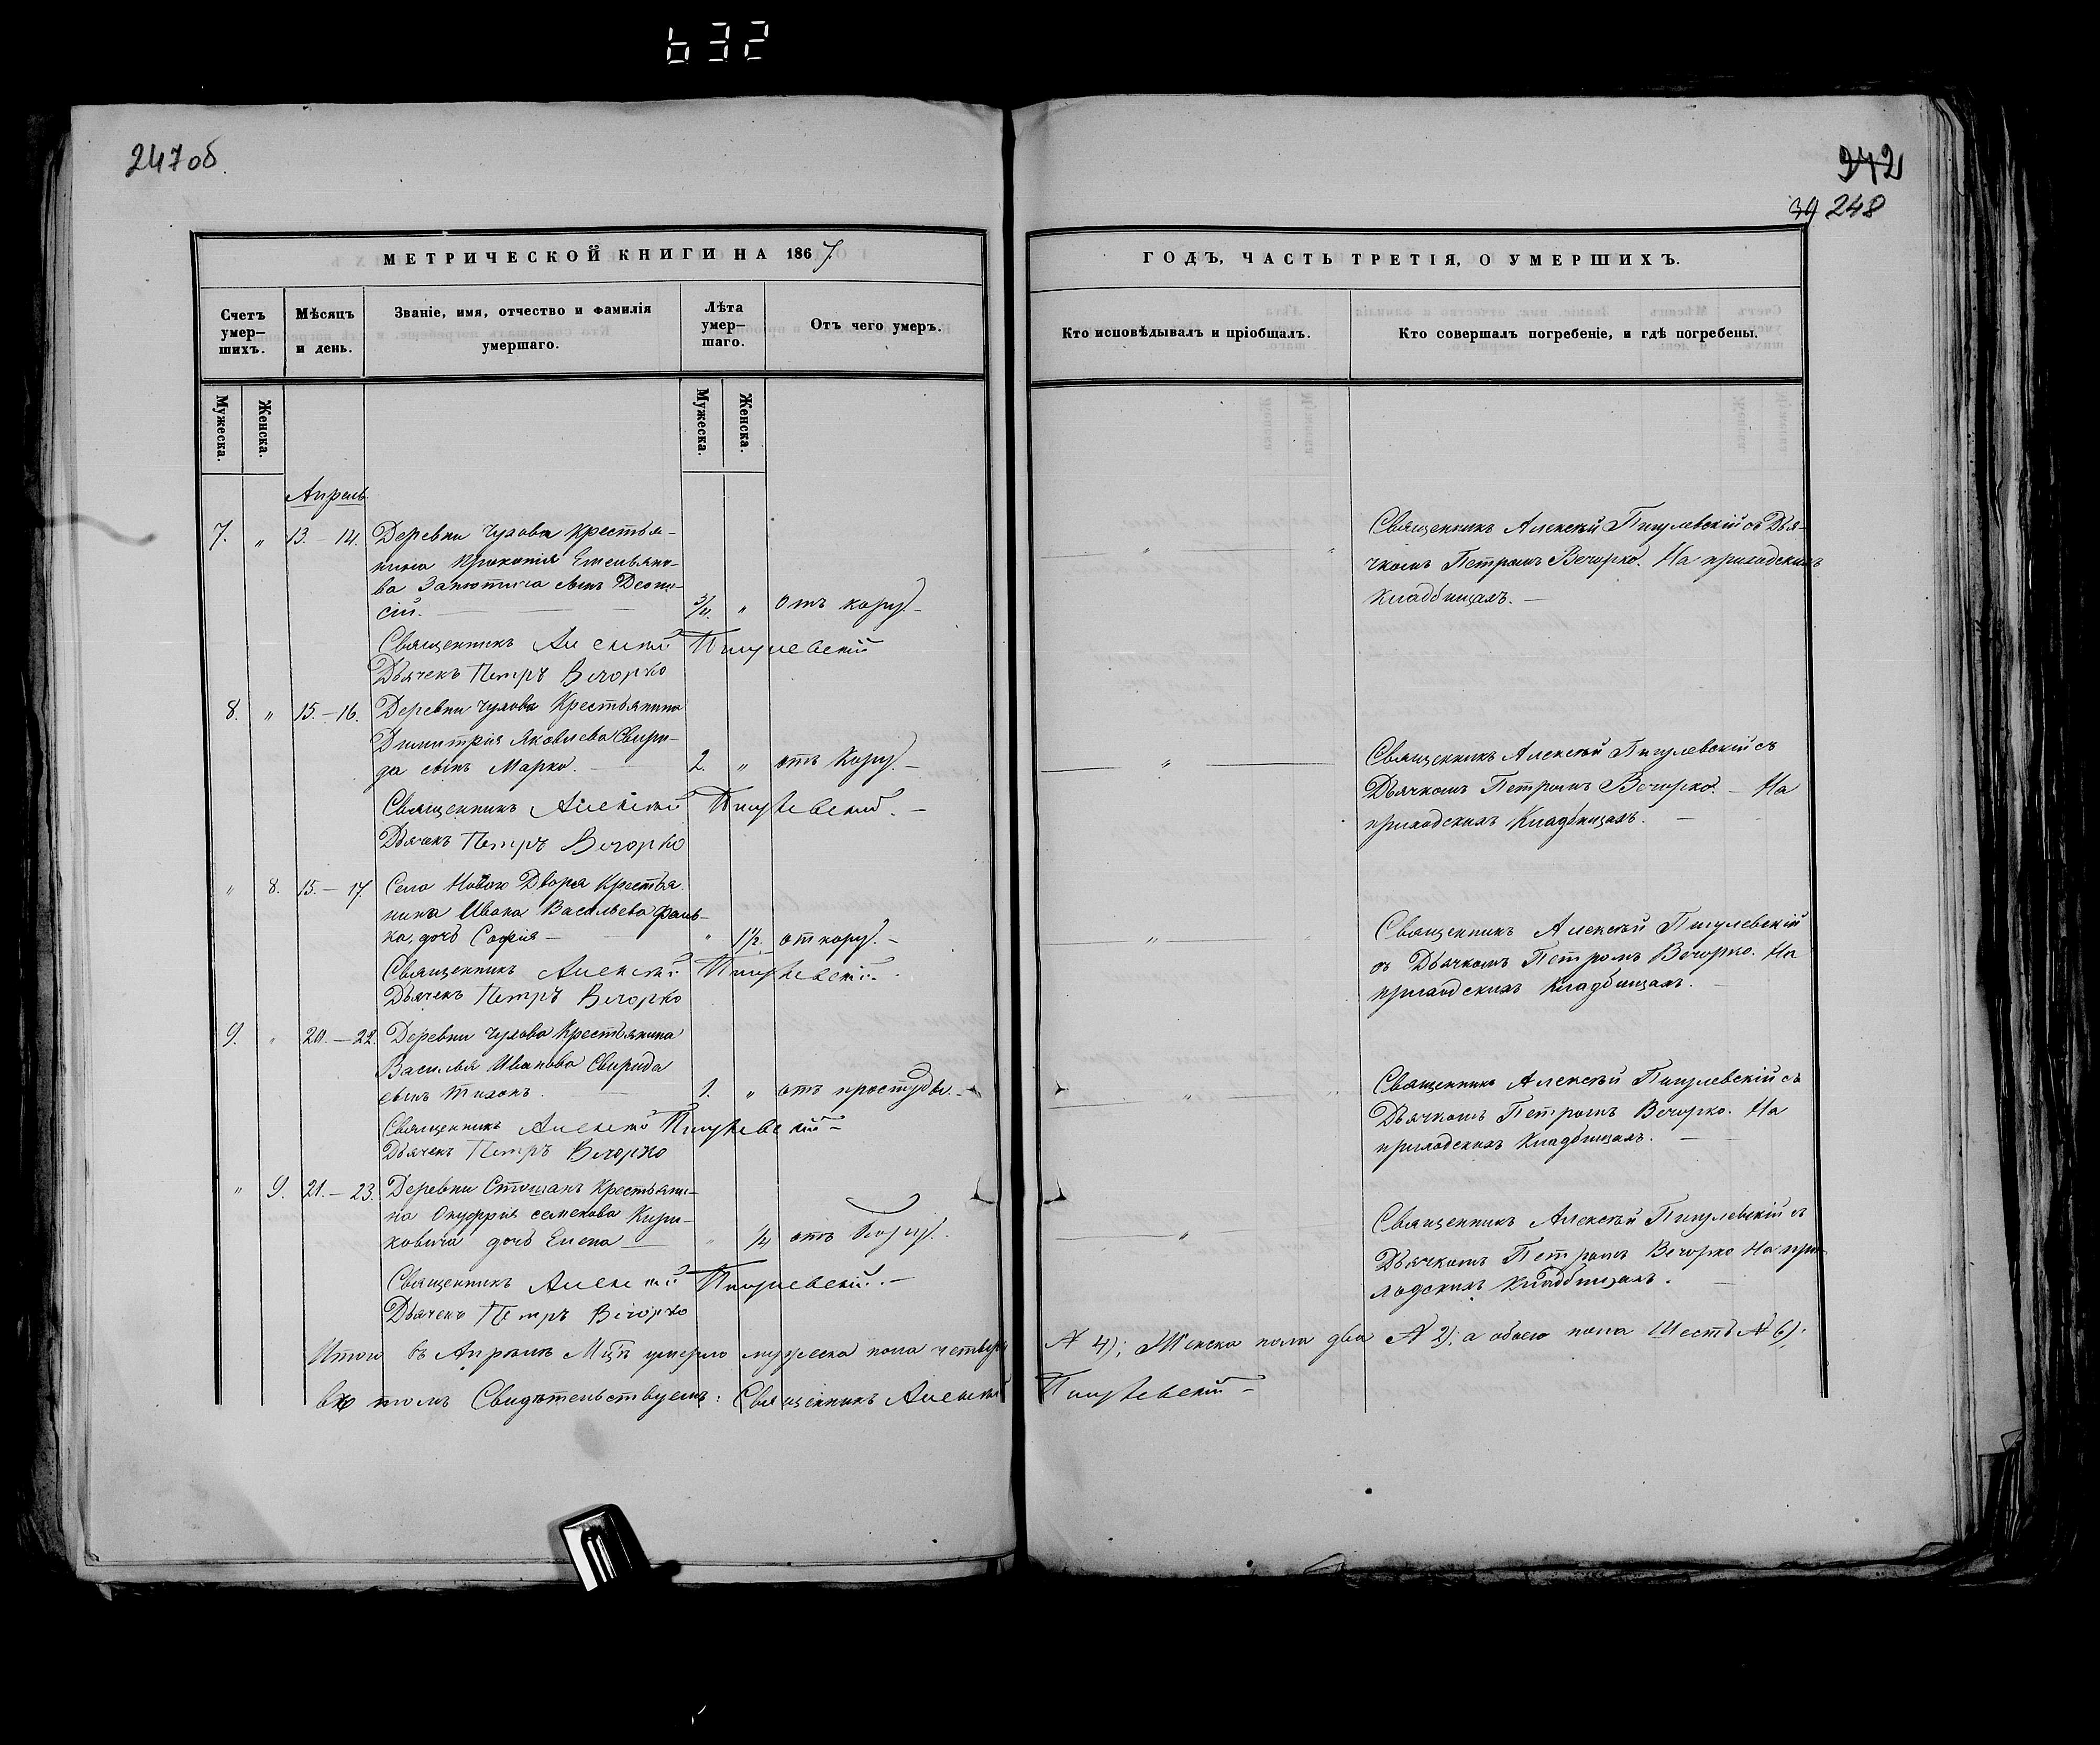 632
247 об.
242
39 248
МЕТРИЧЕСКОЙ КНИГИ НА 1867
ГОДЪ, ЧАСТЬ ТРЕТІЯ, О УМЕРШИХЪ.
Счетъ умер-
шихъ.
Мѣсяцъ
и день.
Званіе, имя, отчество и фамилія
умершаго.
Лѣта
умер-
шаго.
Отъ чего умеръ.
Кто исповѣдывалъ и пріобщалъ.
Кто совершалъ погребеніе, и гдѣ погребены.
Мужеска.
Женска.
Мужеска.
Женска.
Апрель
7. „ 13.–14. Деревни Чухова Крестья-
нина Прокопія Емельяно-
ва сынъ Деони-
сій. „ отъ кору.–
Священникъ Алексѣй Пигулевскій
Дьячекъ Петръ Вечорко
Священникъ Алексѣй Пигулевскій съ Дья-
чкомъ Петромъ Вечорко. На приходскихъ
Кладбищахъ.–
8. „ 15.–16. Деревни Чухова Крестьянина
Димитрія Яковлева Свири-
да сынъ Марко. 2. „ отъ Кору.–
Священникъ Алексѣй Пигулевскій.–
Дьячекъ Петръ Вечорко
Священникъ Алексѣй Пигулевскій съ
Дьячкомъ Петромъ Вечорко.– На
приходскихъ Кладбищахъ.–
„ 8. 15.–17. Села Новаго Двора Крестья-
нина Ивана Васильева
дочь Софія „ 1½. от кору.–
Священникъ Алексѣй Пигулевскій.
Дьячекъ Петръ Вечорко
Священникъ Алексѣй Пигулевскій
съ Дьячкомъ Петромъ Вечорко. На
приходскихъ Кладбищахъ.
9. „ 20.–22. Деревни Чухова Крестьянина
Василья Иванова Свирида
сынъ Тихонъ. 1. „ отъ простуды.–
Священникъ Алексѣй Пигулевскій–
Дьячекъ Петръ Вечорко
Священникъ Алексѣй Пигулевскій съ
Дьячкомъ Петромъ Вечорко. На
приходскихъ Кладбищахъ.–
„ 9. 21.–23. Деревни Крестьяни-
на Онуфрія Семенова Кири-
ковича дочь Елена „ ¼ отъ Кору.
Священникъ Алексѣй Пигулевскій.–
Дьячекъ Петръ Вечорко
Священникъ Алексѣй Пигулевскій съ
Дьячкомъ Петромъ Вечорко На при-
ходскихъ Кладбищахъ.
Итого въ Апрѣлѣ М-цѣ умерло мужеска пола четверо № 4); Женска пола два № 2); а обоего пола Шесть № 6);
въ томъ Свидѣтельствуемъ: Священникъ Алексѣй Пигулевскій–